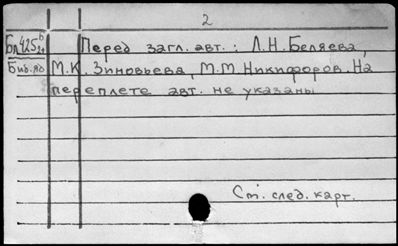 2
Перед загл. авт.: Л.Н. Беляева,
М.К. Зиновьева, М.М. Никифоров. На
переплете авт. не указаны
См. след. карт.